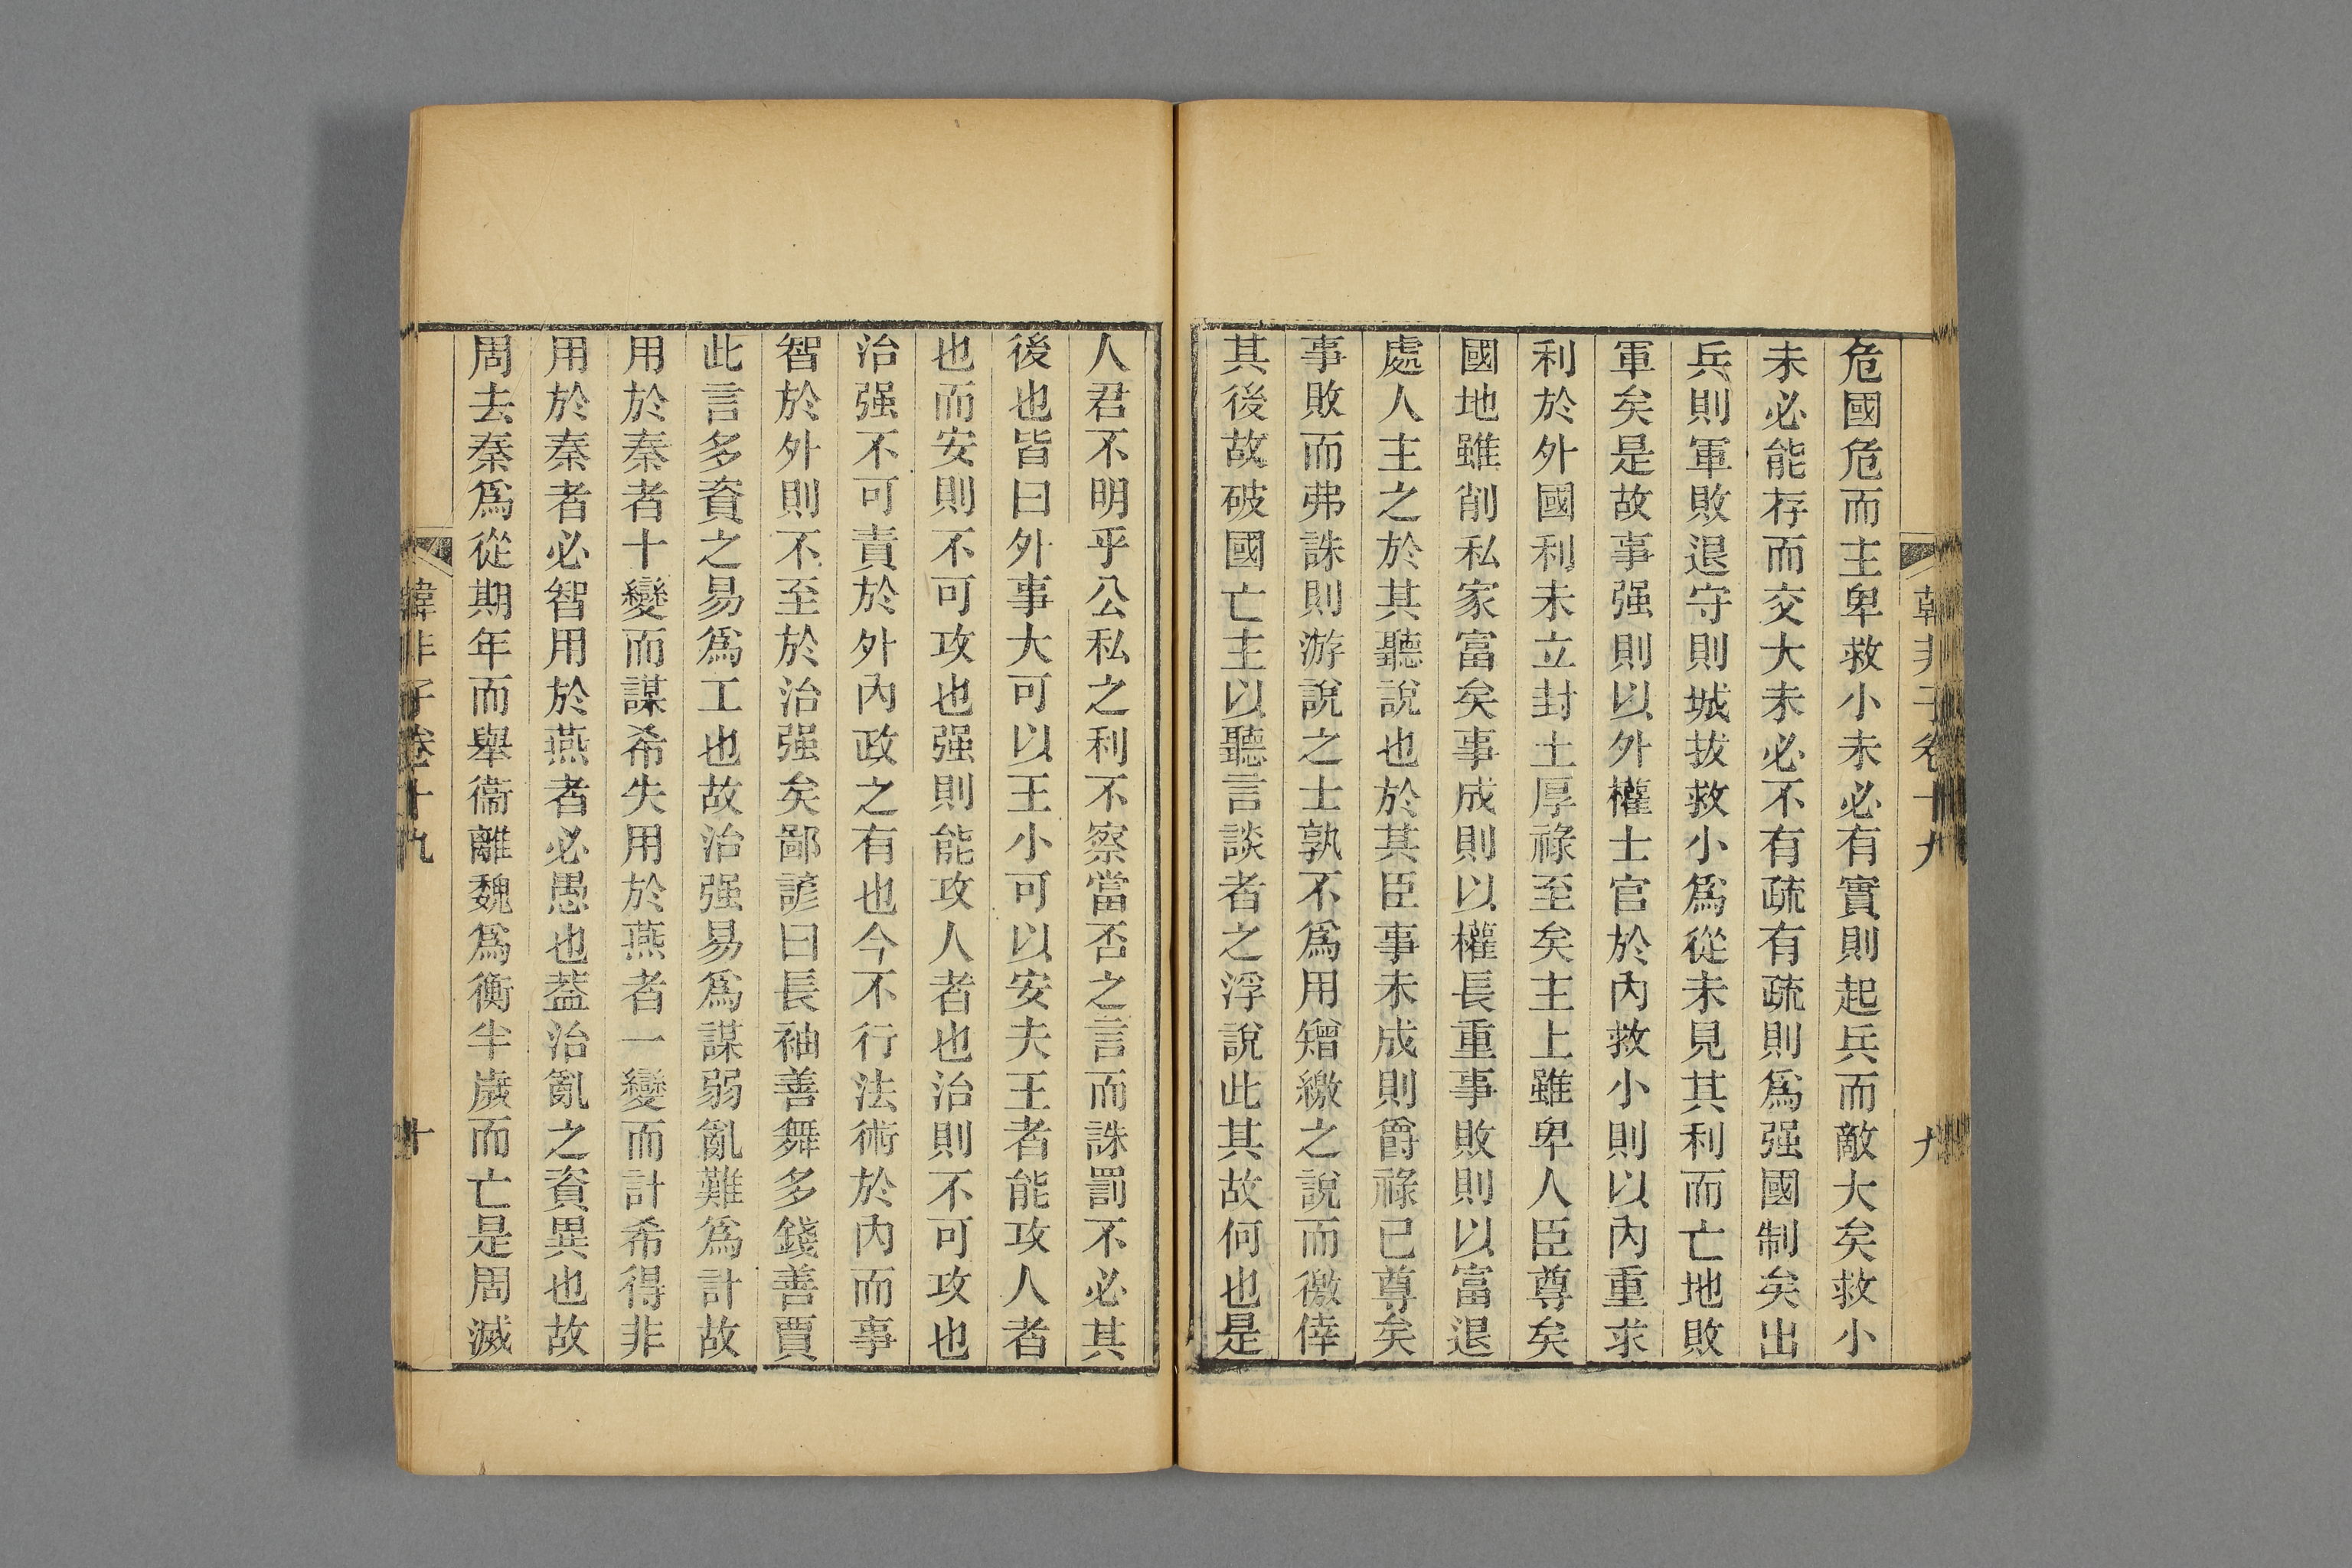 韓非子卷十九
九
危國危而主卑救小未必有實則起兵而敵大矣救小
未必能存而交大未必不有疏有疏則爲强國制矣出
兵則軍敗退守則城拔救小爲從未見其利而亡地敗
軍矣是故事强則以外權士官於內救小則以內重求
利於外國利未立封土厚祿至矣主上雖卑人臣尊矣
國地雖削私家富矣事成則以權長重事敗則以富退
處人主之於其聽說也於其臣事未成則爵祿已尊矣
事敗而弗誅則游說之士孰不爲用矰繳之說而徼倖
其後故破國亡主以聽言談者之浮說此其故何也是
人君不明乎公私之利不察當否之言而誅罰不必其
後也皆曰外事大可以王小可以安夫王者能攻人者
也而安則不可攻也强則能攻人者也治則不可攻也
治强不可責於外內政之有也今不行法術於內而事
智於外則不至於治强矣鄙諺曰長袖善舞多錢善賈
此言多資之易爲工也故治强易爲謀弱亂難爲計故
用於秦者十變而謀希失用於燕者一變而計希得非
用於秦者必智用於燕者必愚也蓋治亂之資異也故
周去秦爲從期年而舉衞離魏爲衡半歲而亡是周滅
韓非子卷十九
十